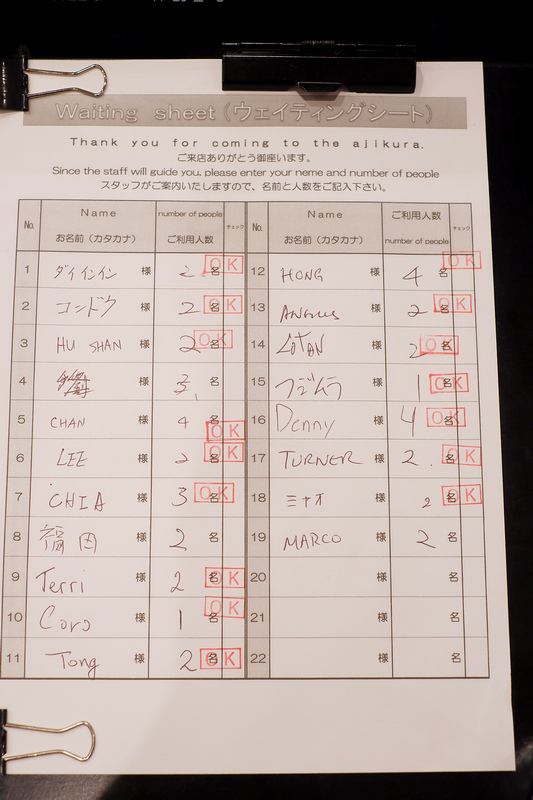 Waiting sheet(ウェイティングシート)
Thank you for coming to the ajikura.
ご来店ありがとう御座います。
Since the staff will guide you, please enter your neme and number of people
スタッフがご案内いたしますので、名前と人数をご記入下さい。
No. Name お名前(カタカナ) number of people ご利用人数 チェック No. Name お名前(カタカナ) ご利用人数 number of people チェック
1 ダイインイン 様 2 名 OK 12 HONG 様 4 名 OK
2 コンドウ 様 2 名 OK 13 ANGUS 様 2 名 OK
3 HU SHAN 様 2 名 OK 14 LOTAN 様 2 名 OK
4 様 3 名 15 フジムラ 様 1 名 OK
5 CHAN 様 4 名 OK 16 Denny 様 4 名 OK
6 LEE 様 2 名 OK 17 TURNER 様 2 名 OK
7 CHIA 様 3 名 OK 18 ミナオ 様 2 名 OK
8 福岡 様 2 名 19 MARCO 様 2 名
9 Terri 様 2 名 OK 20 様 名
10 様 1 名 OK 21 様 名
11 Tong 様 2 名 OK 22 様 名